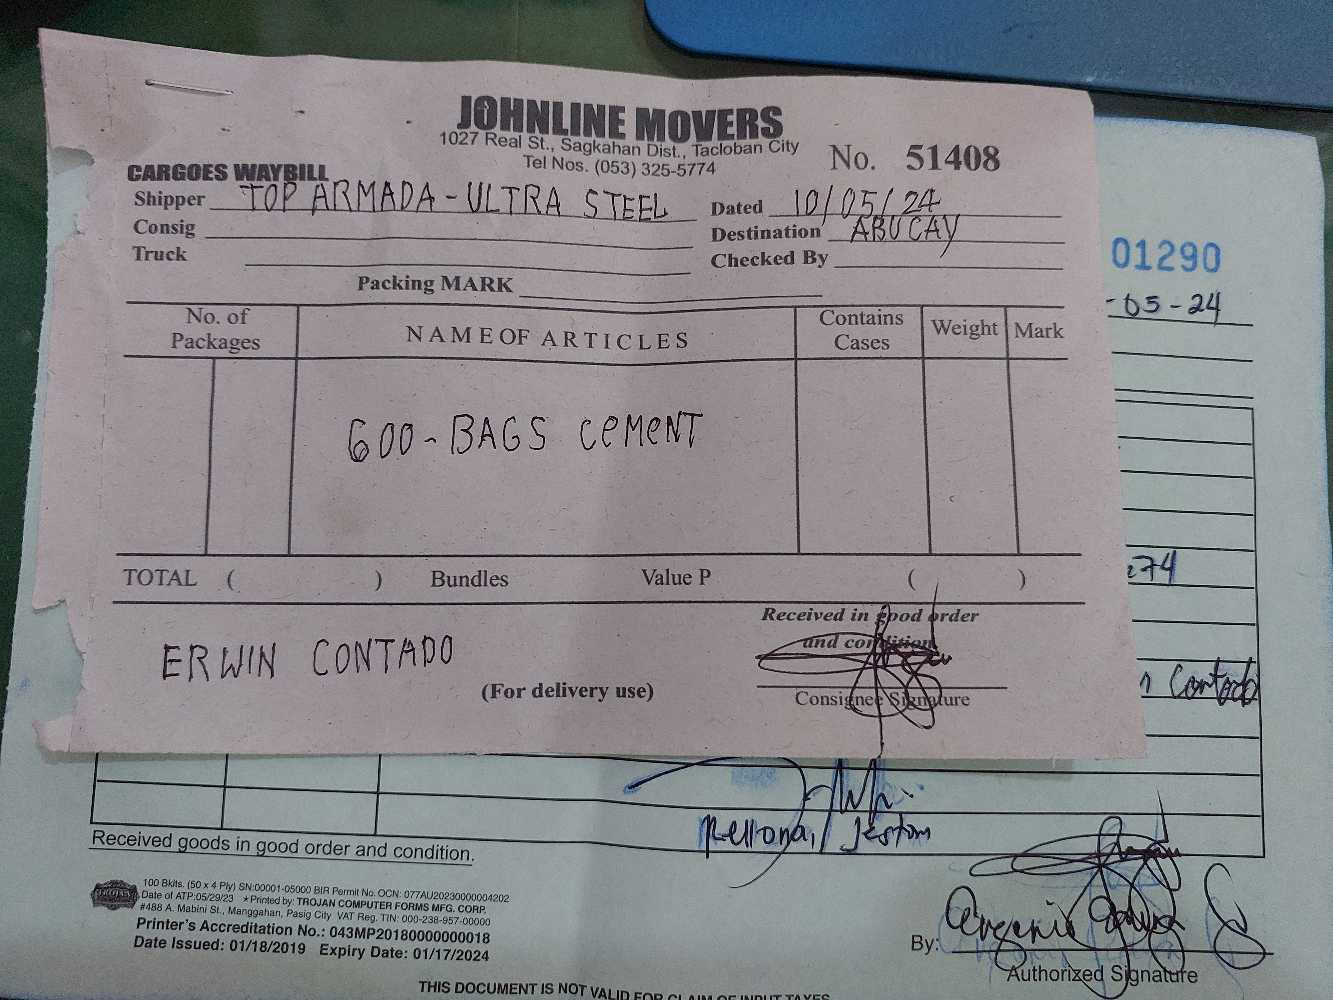 JOHNLINE MOVERS
1027 Real St., Sagkahan Dist., Tacloban City
Tel Nos. (053) 325-5774
No. 51408
CARGOES WAYBILL
Shipper TOP ARMADA - ULTRA STEEL
Dated 10/05/24
Consig
Destination ABUCAY
Truck
Checked By
Packing MARK
No. of Packages
NAME OF ARTICLES
Contains Cases
Weight
Mark
600 - BAGS CEMENT
TOTAL ( ) Bundles Value P ( )
Received in good order
and condition
ERWIN CONTADO
(For delivery use)
Consignee Signature
01290
-05-24
274
Contado
Received goods in good order and condition.
100 Bklts. (50 x 4 Ply) SN:00001-05000 BIR Permit No. OCN: 077AU20230000004202
Date of ATP:05/29/23 ★Printed by: TROJAN COMPUTER FORMS MFG. CORP.
#488 A. Mabini St., Manggahan, Pasig City VAT Reg. TIN: 000-238-957-00000
Printer's Accreditation No.: 043MP20180000000018
Date Issued: 01/18/2019 Expiry Date: 01/17/2024
By:
Authorized Signature
THIS DOCUMENT IS NOT VALID FOR CLAIM OF INPUT TAXES